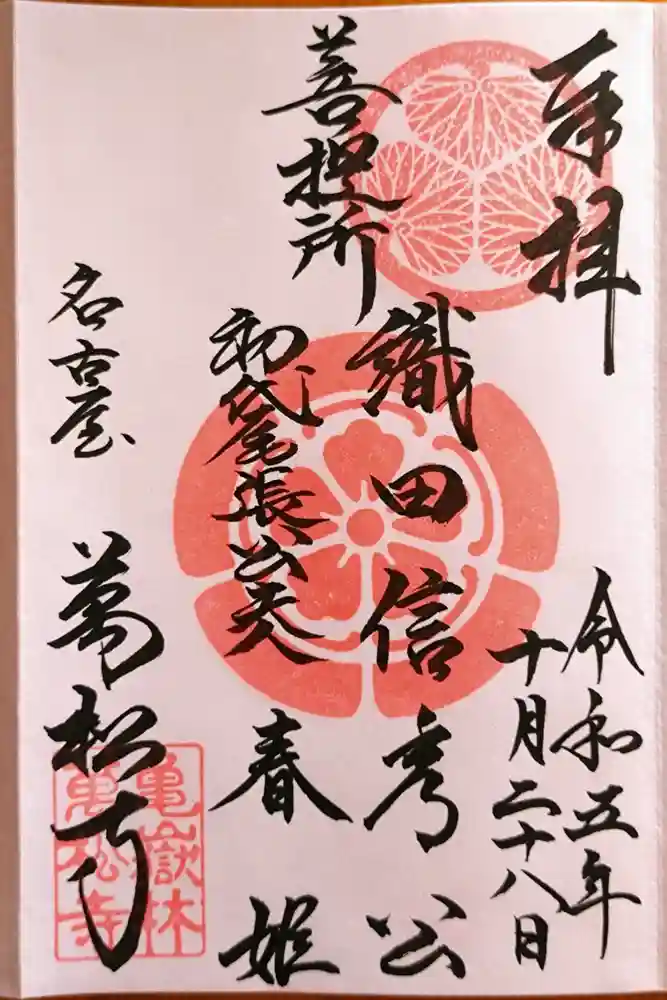 奉拝
令和五年
十月二十八日
菩提所
織田信秀公
初代尾張公夫
春姫
名古屋
萬松寺
亀嶽林
萬松寺